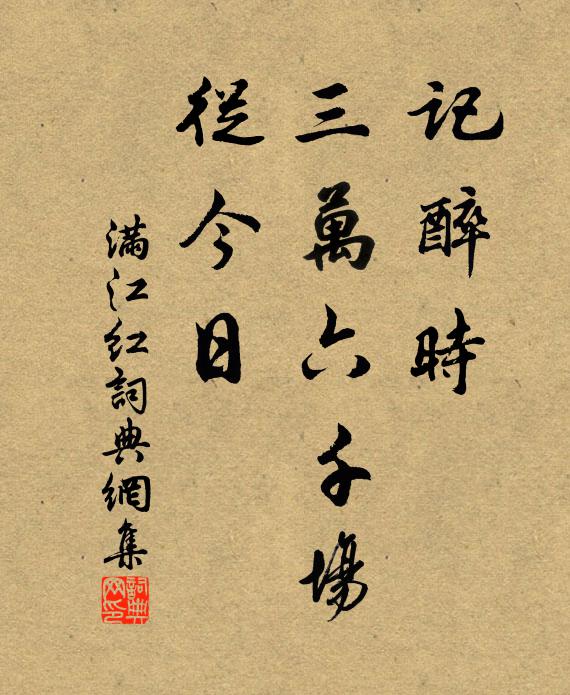 記醉時
三萬六千場
從今日
满江红詞典網集
詞典
网印